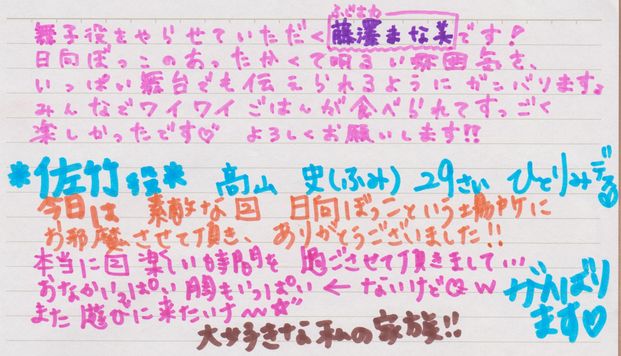 ふじさわ
舞子役をやらせていただく藤澤まな美です!
日向ぼっこのあったかくて明るい雰囲気を、
いっぱい舞台でも伝えられるようにガンバります。
みんなでワイワイごはんが食べられてすっごく
楽しかったです♡ よろしくお願いします!!
*佐竹役* 高山 史(ふみ) 29さい ひとりみデス
今日は 素敵な回 日向ぼっこという場所に
お邪魔させて頂き、ありがとうございました!!
本当に回楽しい時間を 過ごさせて頂きまして…
おなかいっぱい 胸もいっぱい ← ないけどw
また 遊びに来たいナ〜☆"
がんばり
ます♡
大好きな私の家族!!